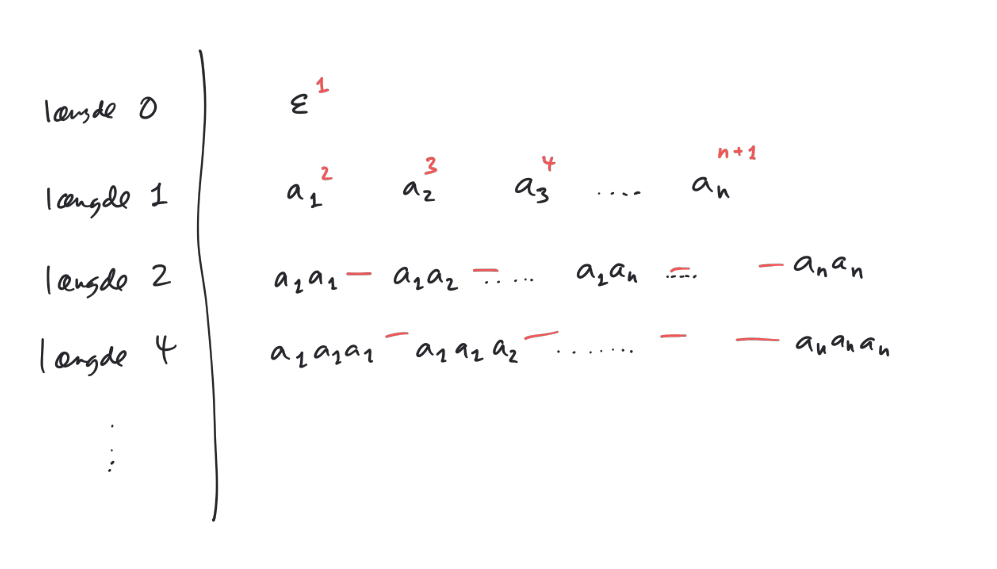 længde 0 ε 1
længde 1 a₁ 2 a₂ 3 a₃ 4 .... aₙ n+1
længde 2 a₁a₁ — a₁a₂ — ..... a₁aₙ — ..... — aₙaₙ
længde 4 a₁a₁a₁ — a₁a₁a₂ — ....... — — aₙaₙaₙ
⋮